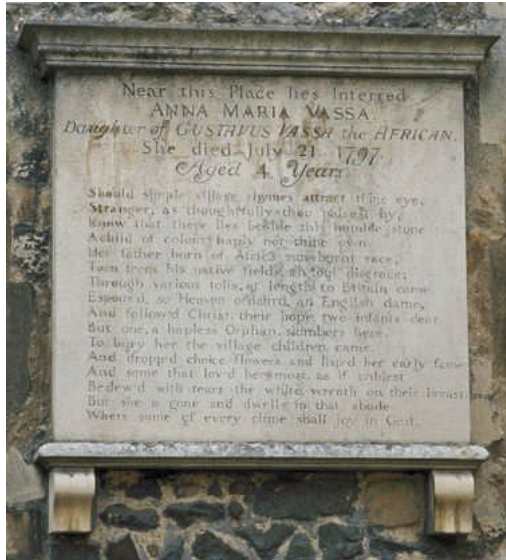 Near this Place lies Interred
ANNA MARIA VASSA
Daughter of GUSTAVUS VASSA the AFRICAN.
She died July 21 1797
Aged 4 Years
Should simple village rhymes attract thine eye,
Stranger, as thoughtfully thou passest by,
Know that there lies beside this humble stone
A child of colour haply not thine own.
Her father born of Afric's sun-burnt race,
Torn from his native fields, ah foul disgrace;
Through various toils, at length to Britain came
Espous'd, so Heaven ordain'd, an English dame,
And follow'd Christ; their hope two infants dear.
But one, a hapless Orphan, slumbers here.
To bury her the village children came,
And dropp'd choice flowers, and lisp'd her early fame
And some that lov'd her most, as if unblest
Bedew'd with tears the white wreath on their breast
But she is gone and dwells in that abode
Where some of every clime shall joy in God.